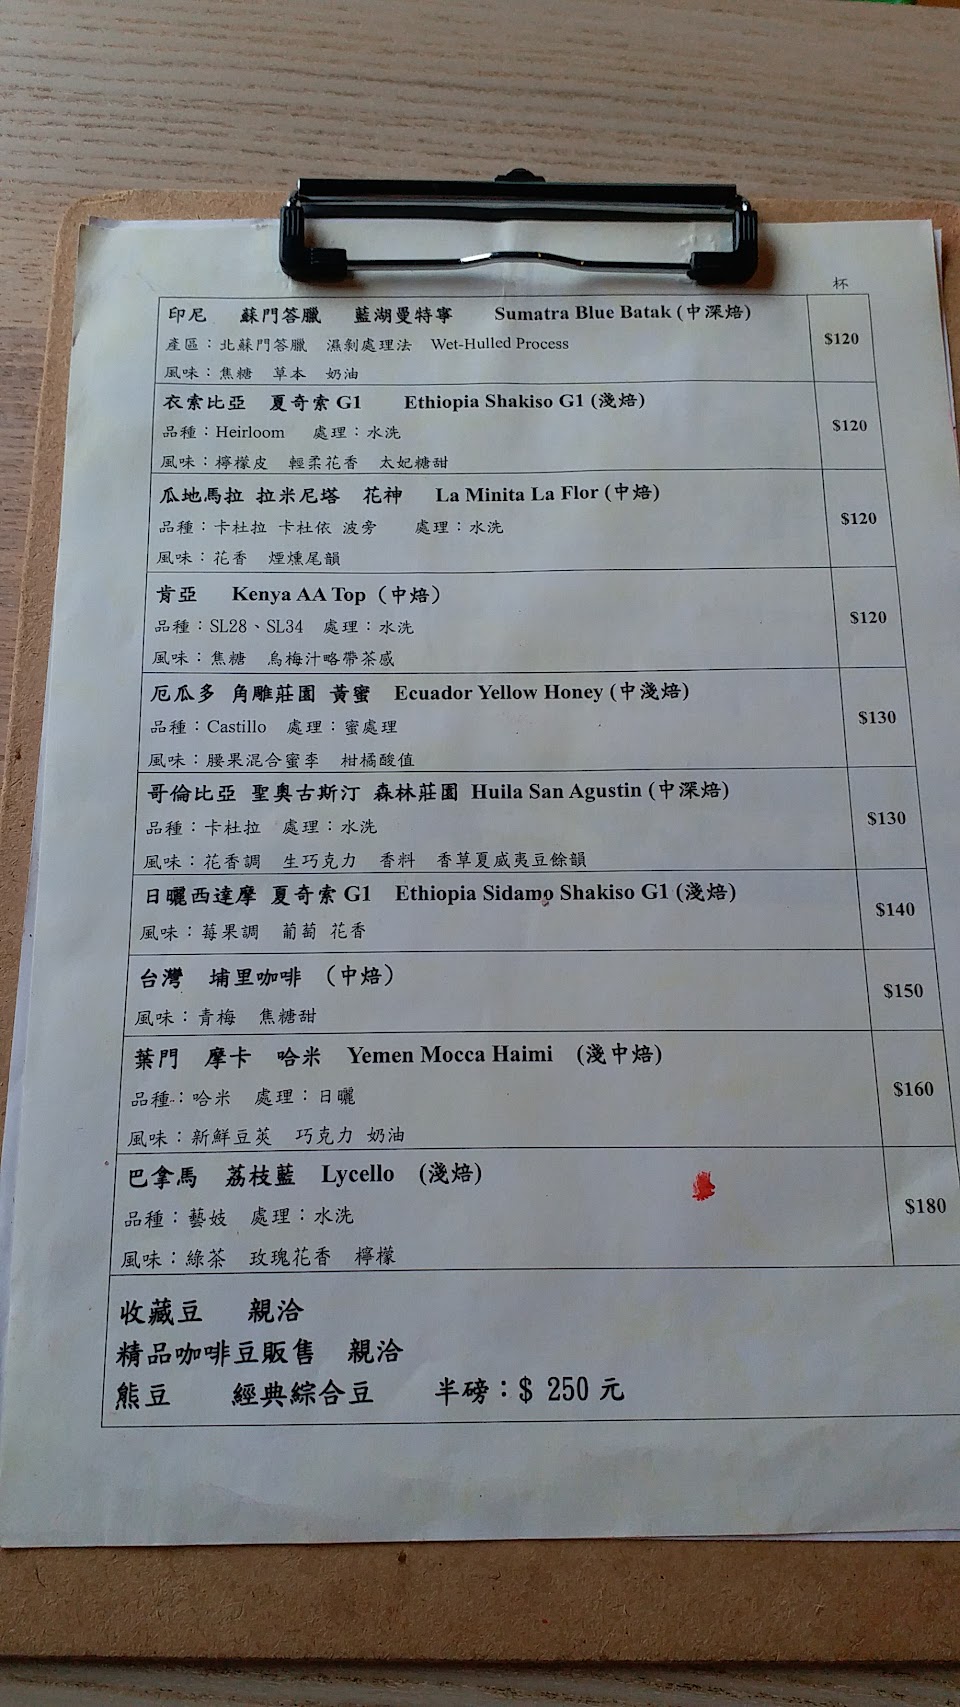 杯
印尼 蘇門答臘 藍湖曼特寧 Sumatra Blue Batak (中深焙) $120
產區：北蘇門答臘 濕剝處理法 Wet-Hulled Process
風味：焦糖 草本 奶油
衣索比亞 夏奇索 G1 Ethiopia Shakiso G1 (淺焙) $120
品種：Heirloom 處理：水洗
風味：檸檬皮 輕柔花香 太妃糖甜
瓜地馬拉 拉米尼塔 花神 La Minita La Flor (中焙) $120
品種：卡杜拉 卡杜依 波旁 處理：水洗
風味：花香 煙燻尾韻
肯亞 Kenya AA Top (中焙) $120
品種：SL28、SL34 處理：水洗
風味：焦糖 烏梅汁略帶茶感
厄瓜多 角雕莊園 黃蜜 Ecuador Yellow Honey (中淺焙) $130
品種：Castillo 處理：蜜處理
風味：腰果混合蜜李 柑橘酸值
哥倫比亞 聖奧古斯汀 森林莊園 Huila San Agustin (中深焙) $130
品種：卡杜拉 處理：水洗
風味：花香調 生巧克力 香料 香草夏威夷豆餘韻
日曬西達摩 夏奇索 G1 Ethiopia Sidamo Shakiso G1 (淺焙) $140
風味：莓果調 葡萄 花香
台灣 埔里咖啡 (中焙) $150
風味：青梅 焦糖甜
葉門 摩卡 哈米 Yemen Mocca Haimi (淺中焙) $160
品種：哈米 處理：日曬
風味：新鮮豆莢 巧克力 奶油
巴拿馬 荔枝藍 Lycello (淺焙) $180
品種：藝妓 處理：水洗
風味：綠茶 玫瑰花香 檸檬
收藏豆 親洽
精品咖啡豆販售 親洽
熊豆 經典綜合豆 半磅：$ 250 元